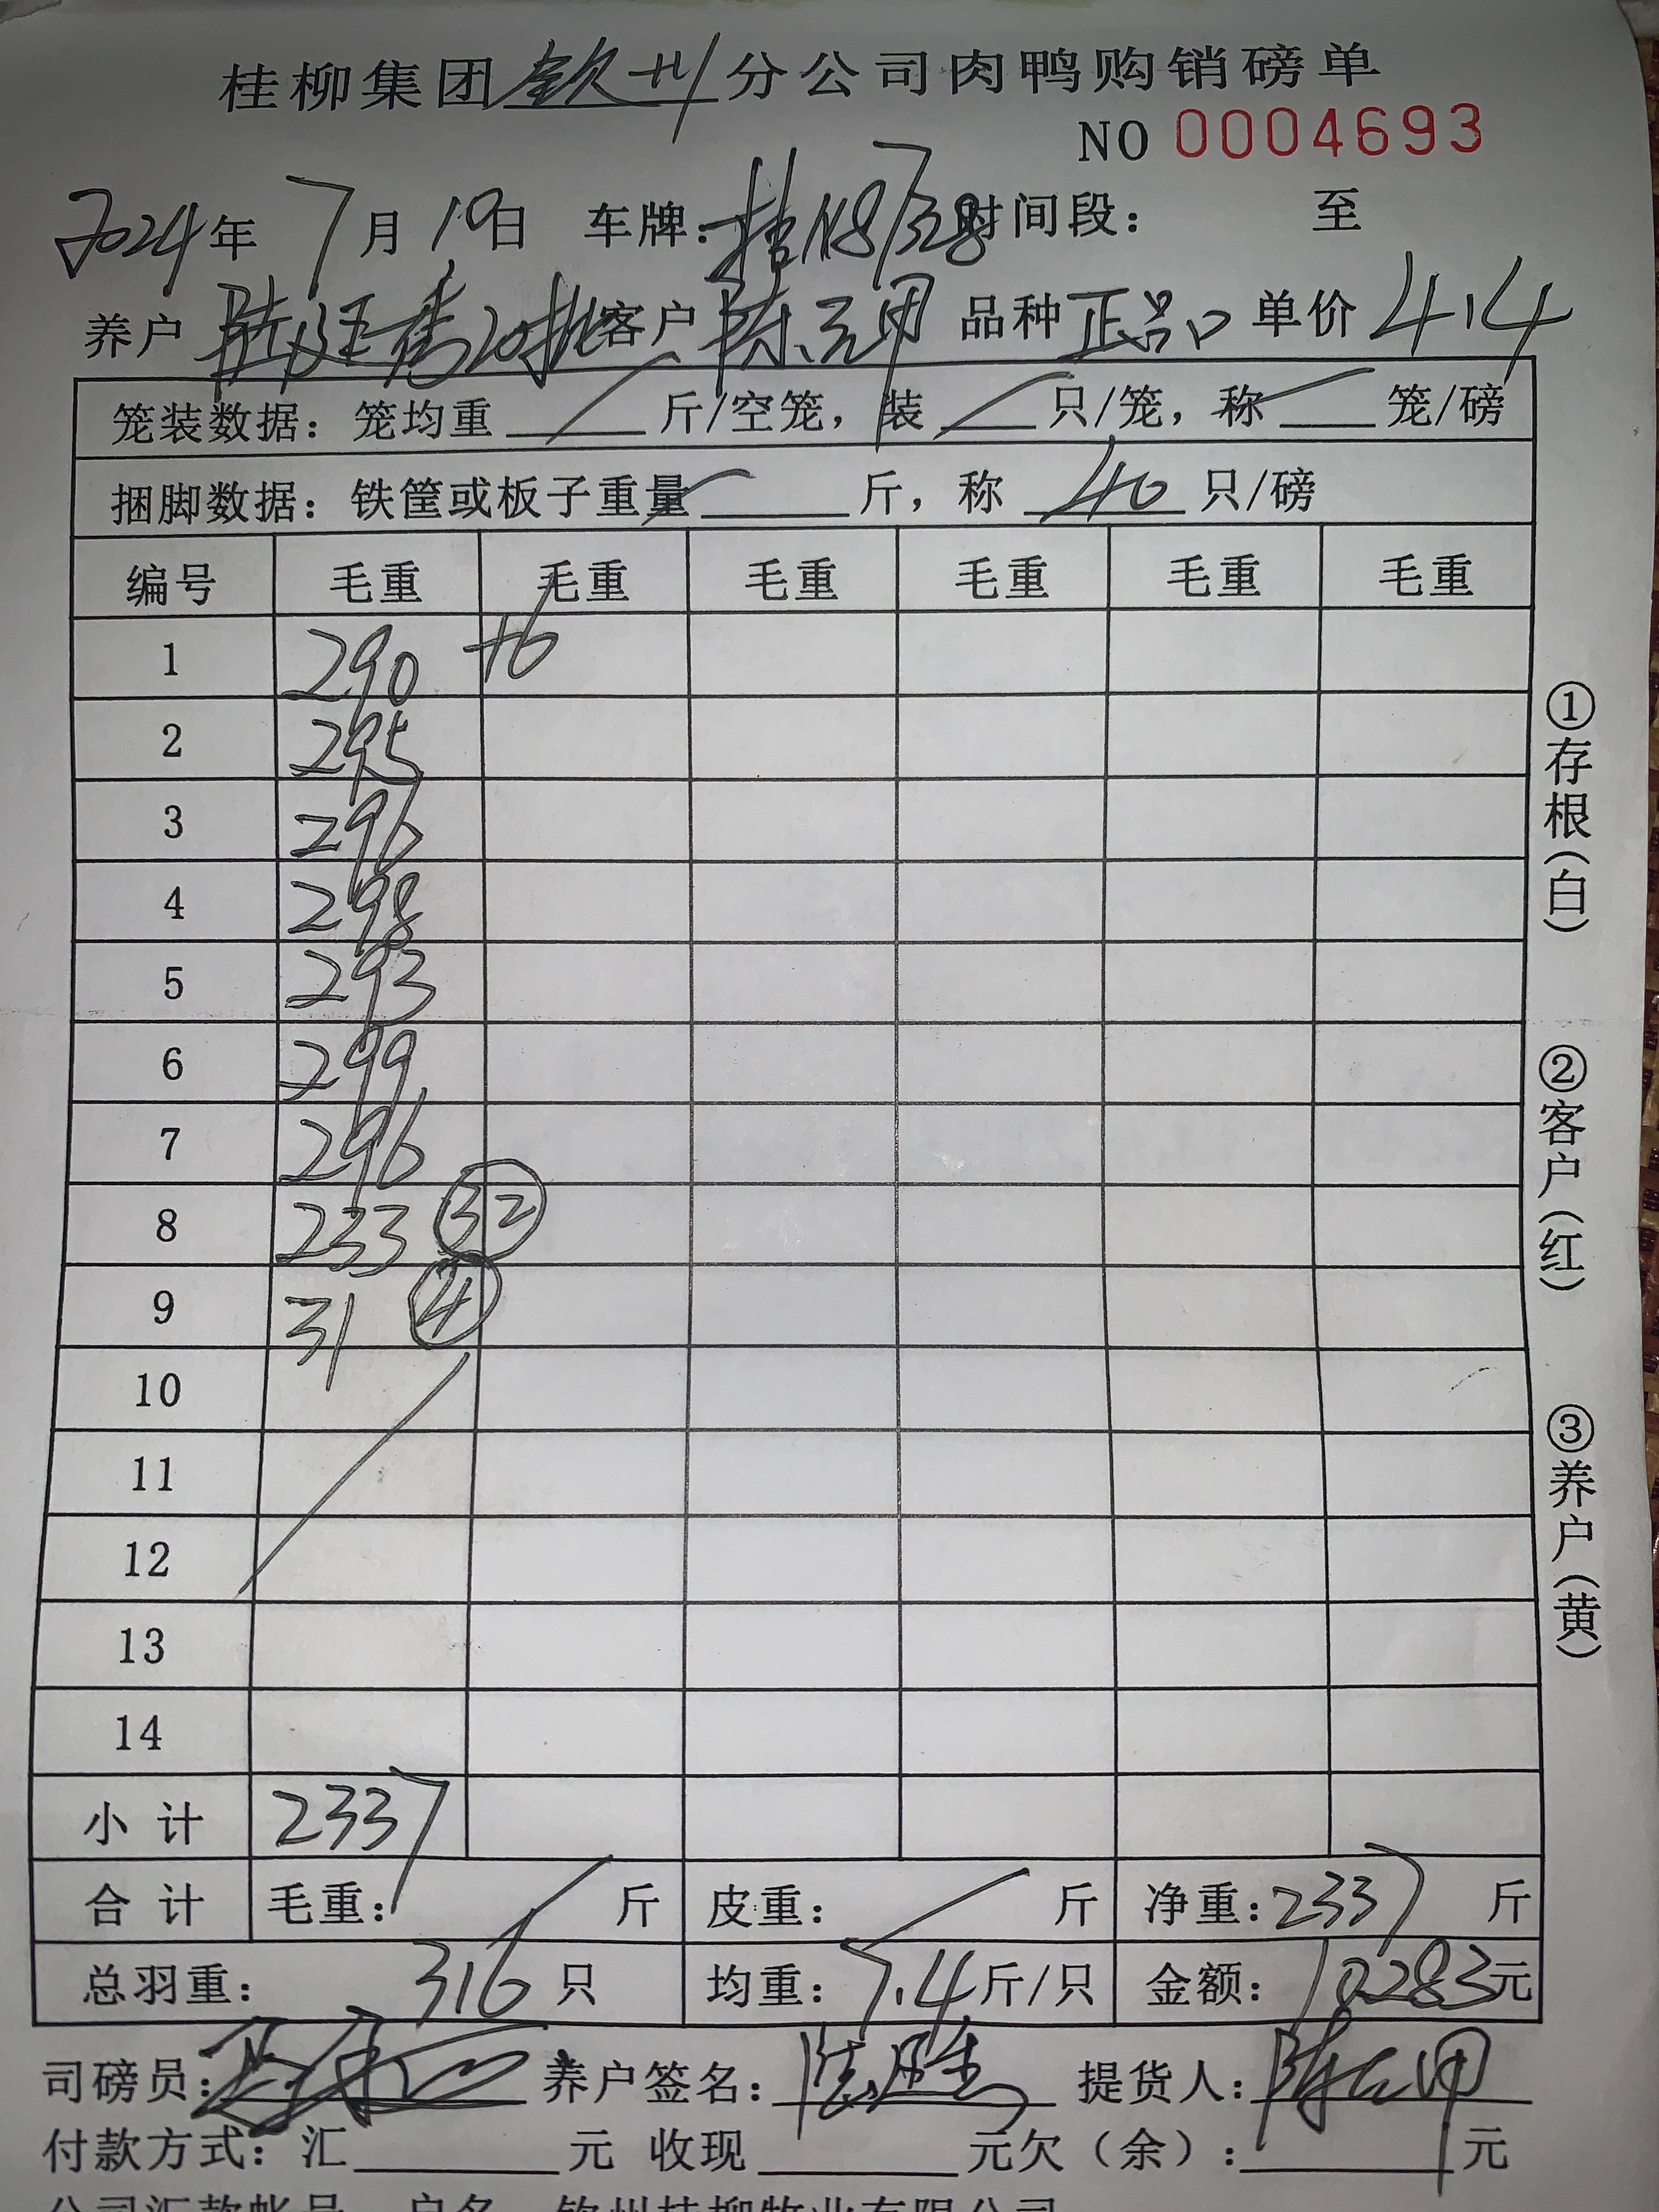 桂柳集团钦州分公司肉鸭购销磅单
NO 0004693
2024年 7月19日 车牌: 桂K8738 时间段: 至
养户 陆廷秀20批 客户 陈元甲 品种 正品口 单价 4.4
笼装数据: 笼均重 斤/空笼, 装 只/笼, 称 笼/磅
捆脚数据: 铁筐或板子重量 斤, 称 40 只/磅
编号 毛重 毛重 毛重 毛重 毛重 毛重
1 290 +6
2 295
3 296
4 298
5 293
6 299
7 296
8 233 ㉜
9 31 ④
10
11
12
13
14
小计 2337
合计 毛重: 斤 皮重: 斤 净重: 2337 斤
总羽重: 316 只 均重: 7.4 斤/只 金额: 10283元
司磅员: 养户签名: 提货人: 陈元甲
付款方式: 汇 元 收现 元欠(余): 元
公司汇款帐号 户名 钦州桂柳牧业有限公司
①存根(白)
②客户(红)
③养户(黄)